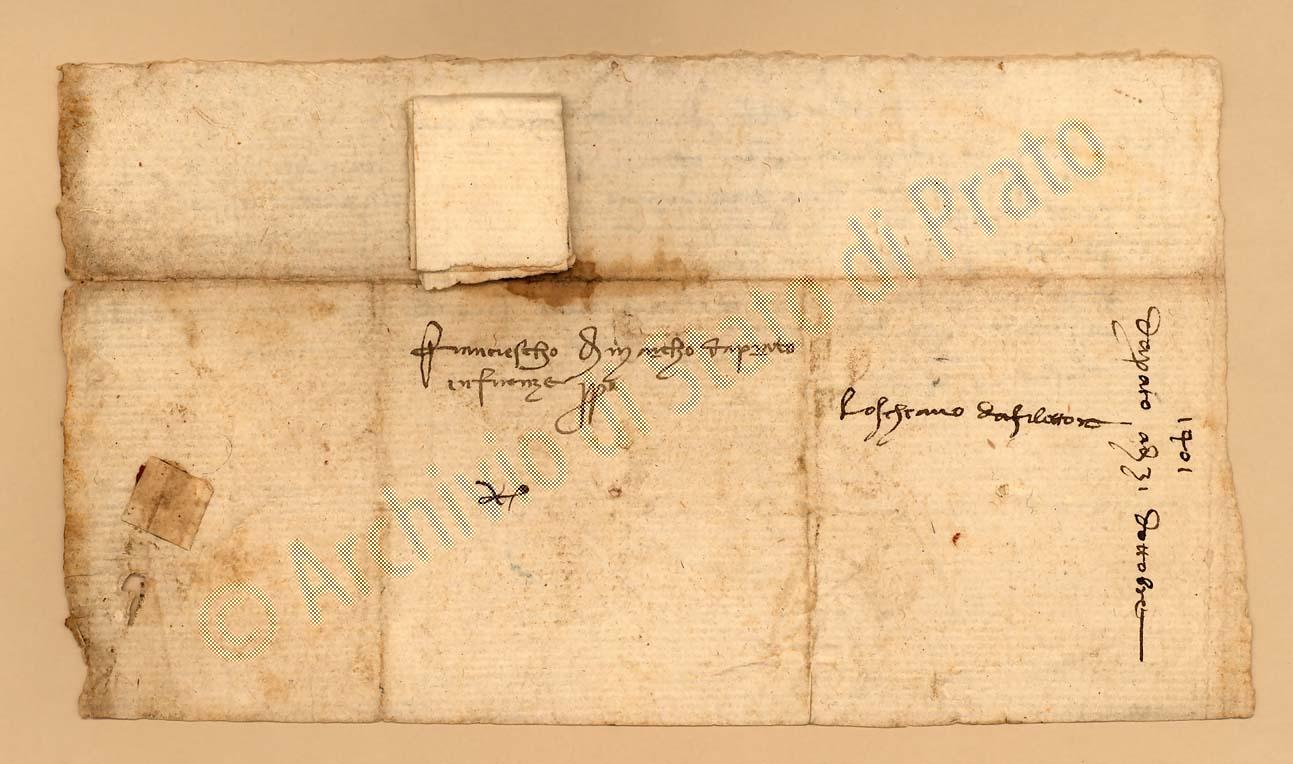 Franciescho di Marcho da Prato
in Firenze
Lo Schiavo da Filettore
1401
Da Prato a dì 31 d'ottobre
© Archivio di Stato di Prato